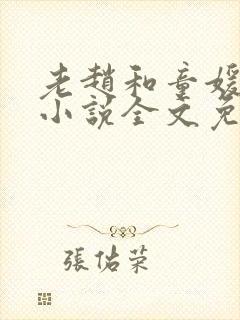 老趙和童媛
小說全文免
張佑榮